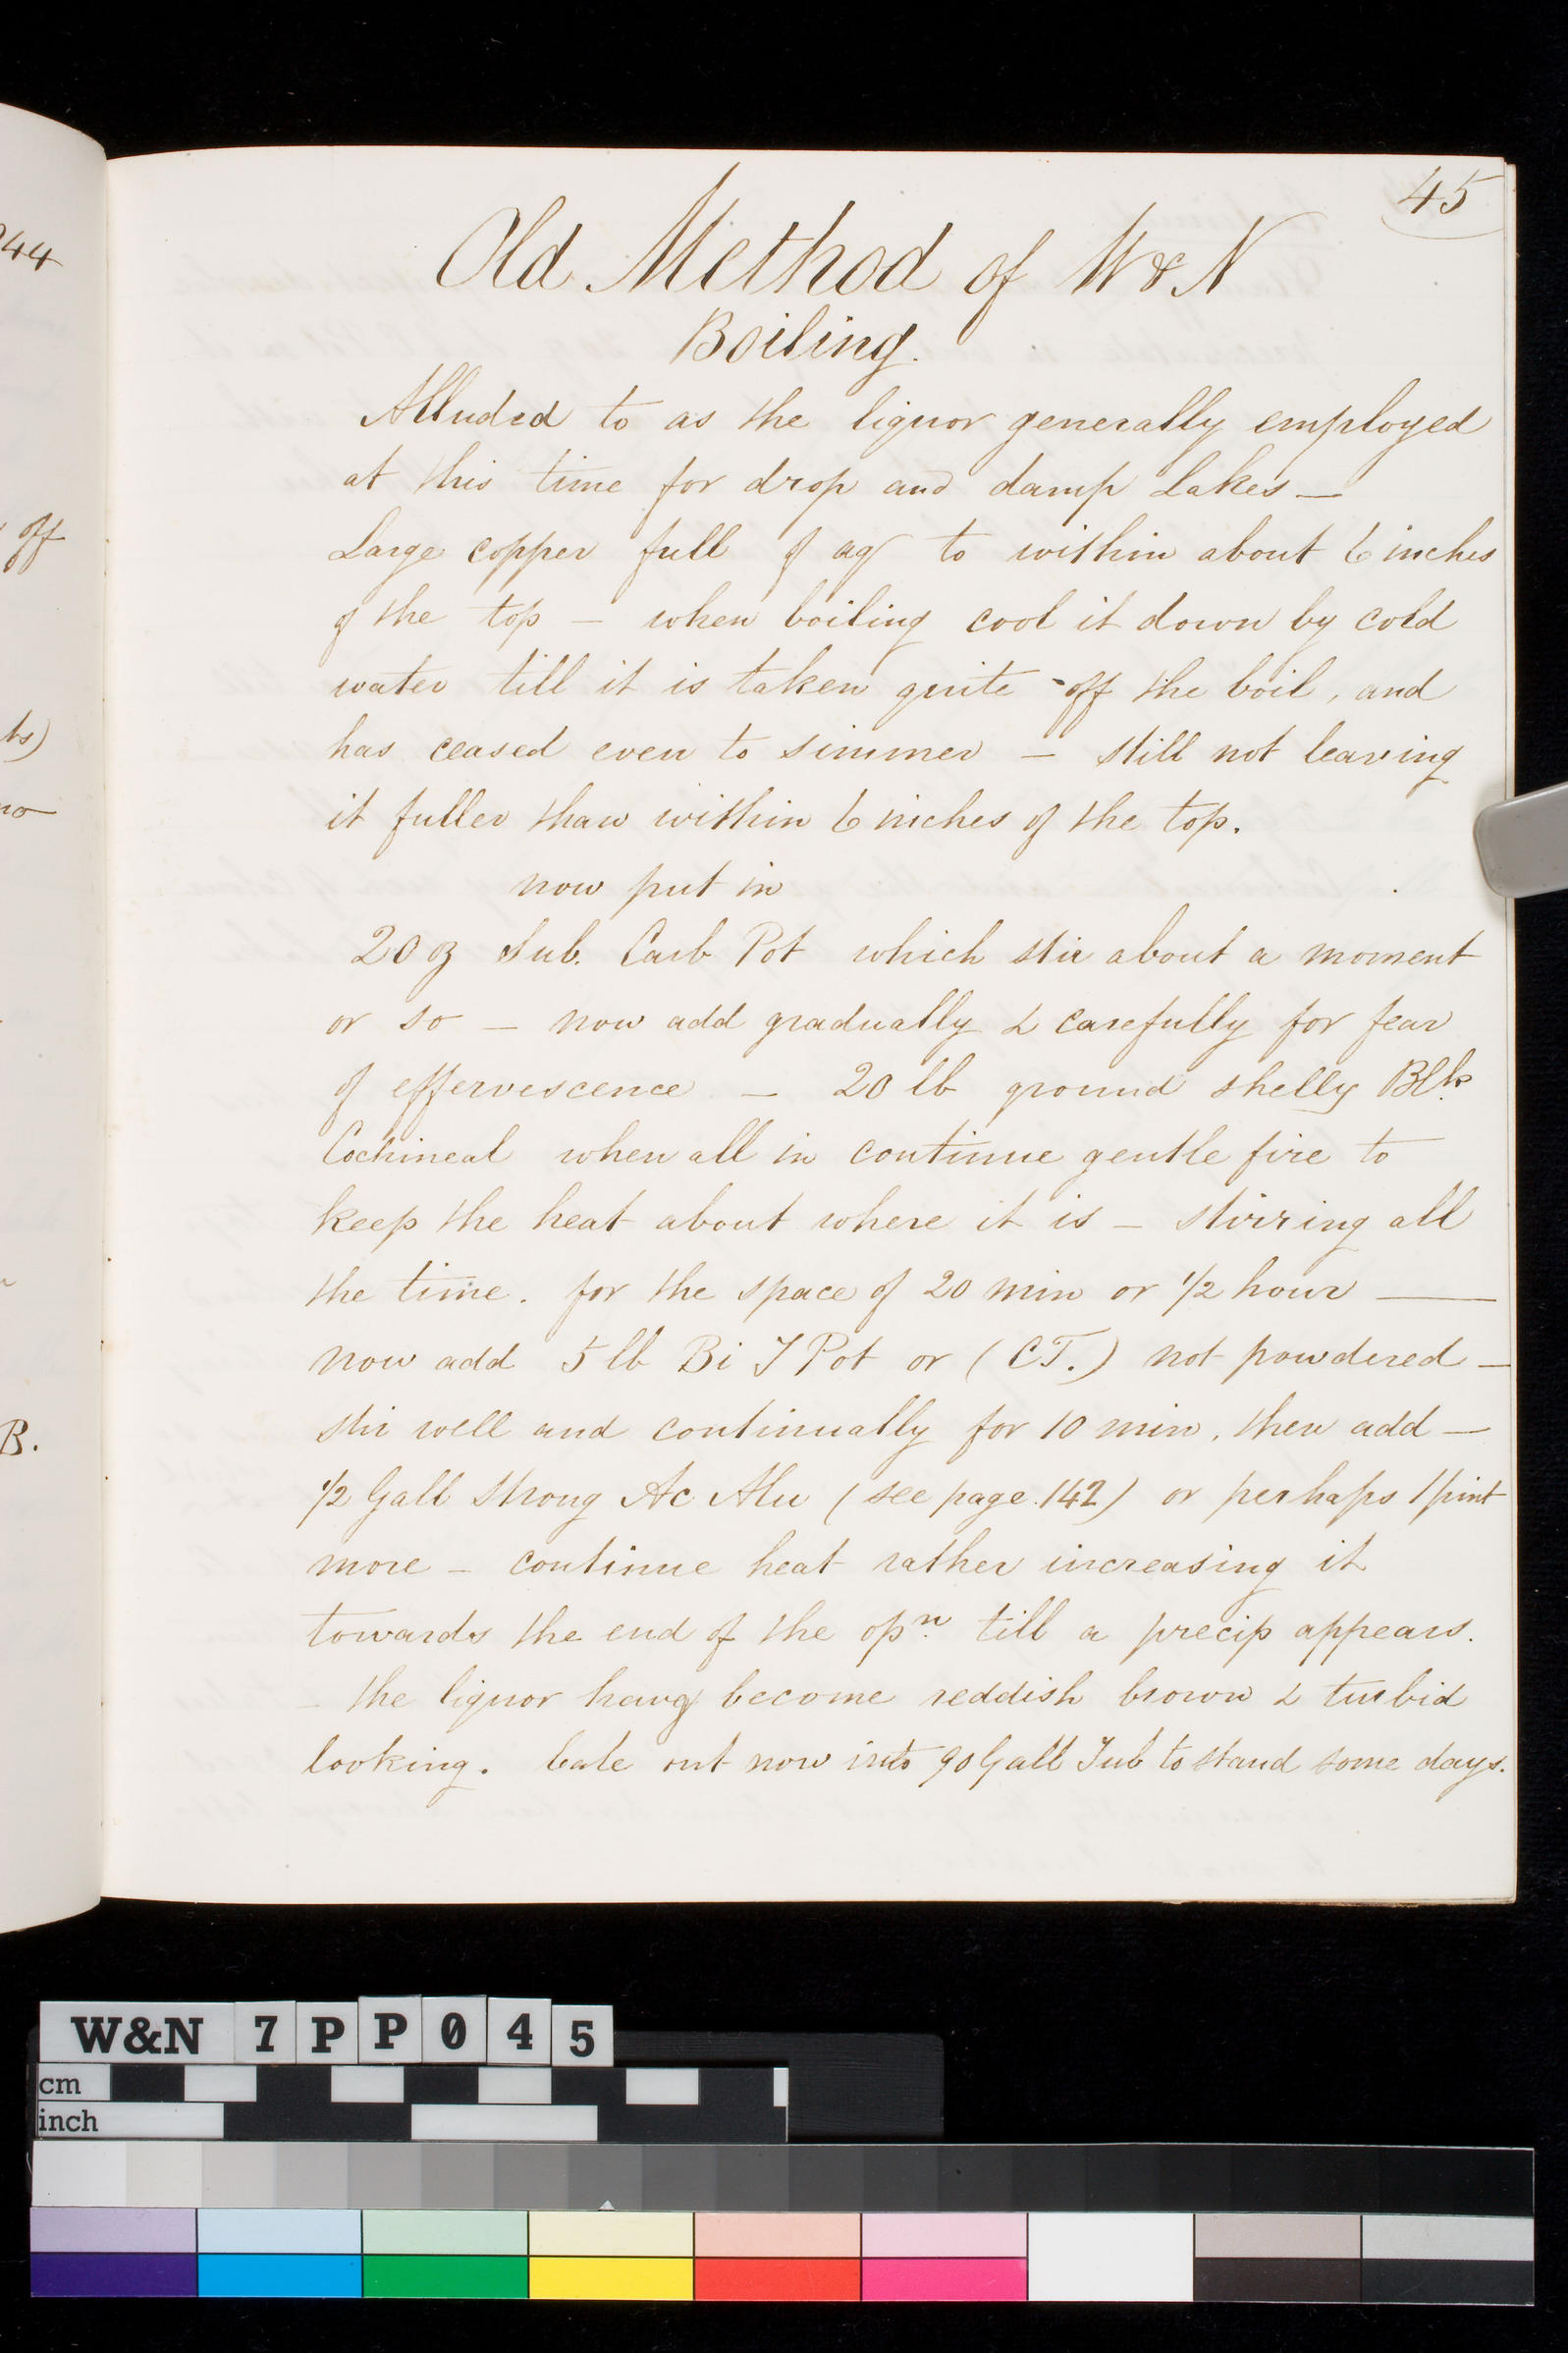 45
Old Method of W & N
Boiling.
Alluded to as the liquor generally employed
at this time for drop and damp Lakes —
Large copper full of aq to within about 6 inches
of the top — when boiling cool it down by cold
water till it is taken quite off the boil, and
has ceased even to simmer — still not leaving
it fuller than within 6 inches of the top.
now put in
20 oz Sub. Carb Pot which stir about a moment
or so — now add gradually & carefully for fear
of effervescence — 20 lb ground shelly Blk
Cochineal when all in continue gentle fire to
keep the heat about where it is — stirring all
the time. for the space of 20 min or 1/2 hour —
now add 5 lb Bi T Pot or (CT.) not powdered —
stir well and continually for 10 min, then add —
1/2 Gall Strong Ac Alu (see page 142) or perhaps 1 pint
more — continue heat rather increasing it
towards the end of the opn. till a precip appears.
— the liquor havg become reddish brown & turbid
looking. bale out now into 90 Gall Tub to stand some days.
44
off
ts)
no
B.
W&N 7PP045
cm
inch